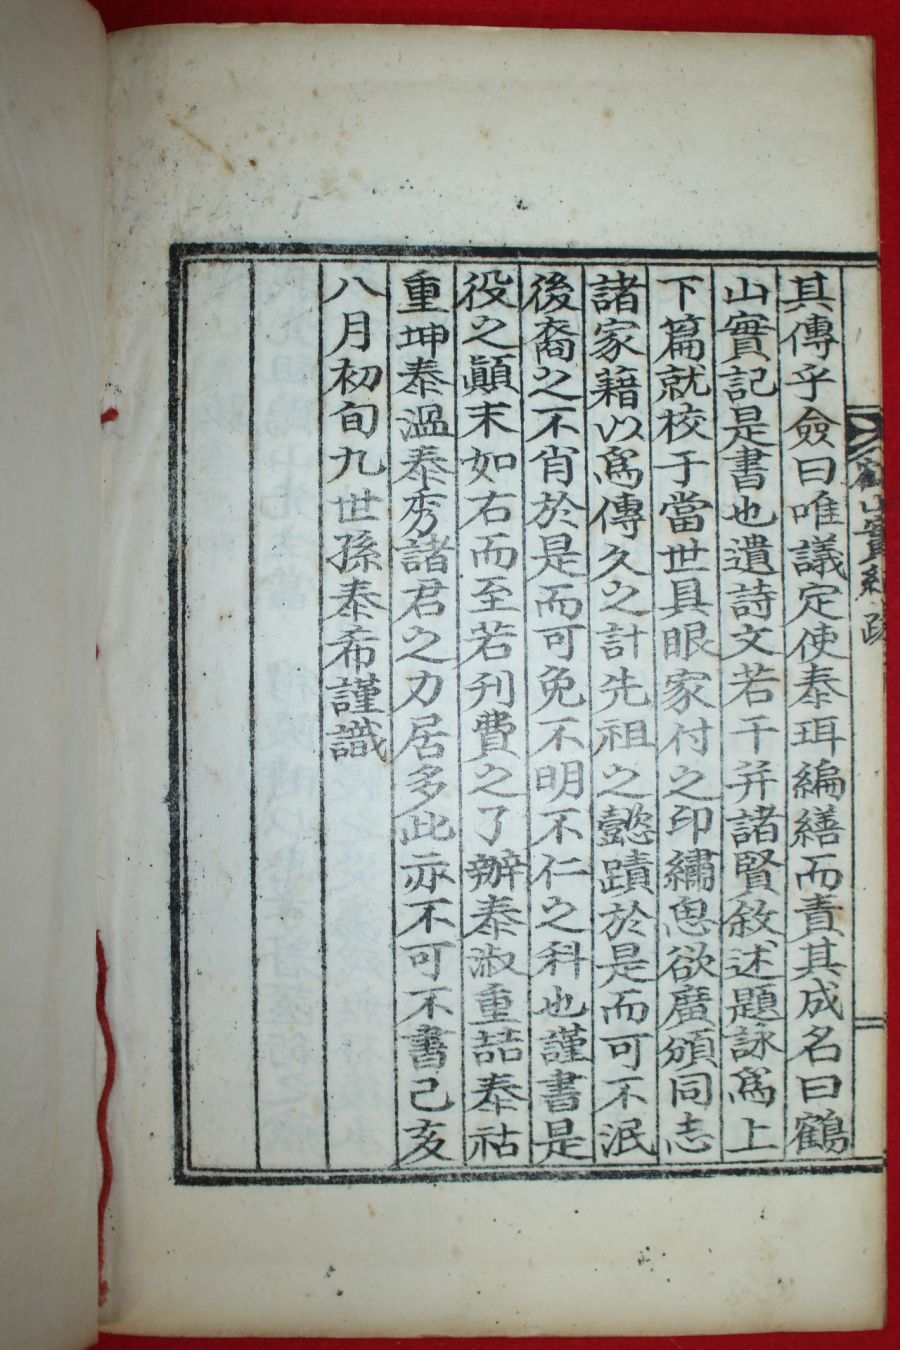 其傳乎僉曰唯議定使泰珥編繕而責其成名曰鶴
山實記是書也遺詩文若干并諸賢敘述題詠爲上
下篇就校于當世具眼家付之印繡思欲廣頒同志
諸家藉以爲傳久之計先祖之懿蹟於是而可不泯
後裔之不肖於是而可免不明不仁之科也謹書是
役之顚末如右而至若刋費之了辦泰淑重喆泰祜
重坤泰溫泰秀諸君之力居多此亦不可不書己亥
八月初旬九世孫泰希謹識
山實紀